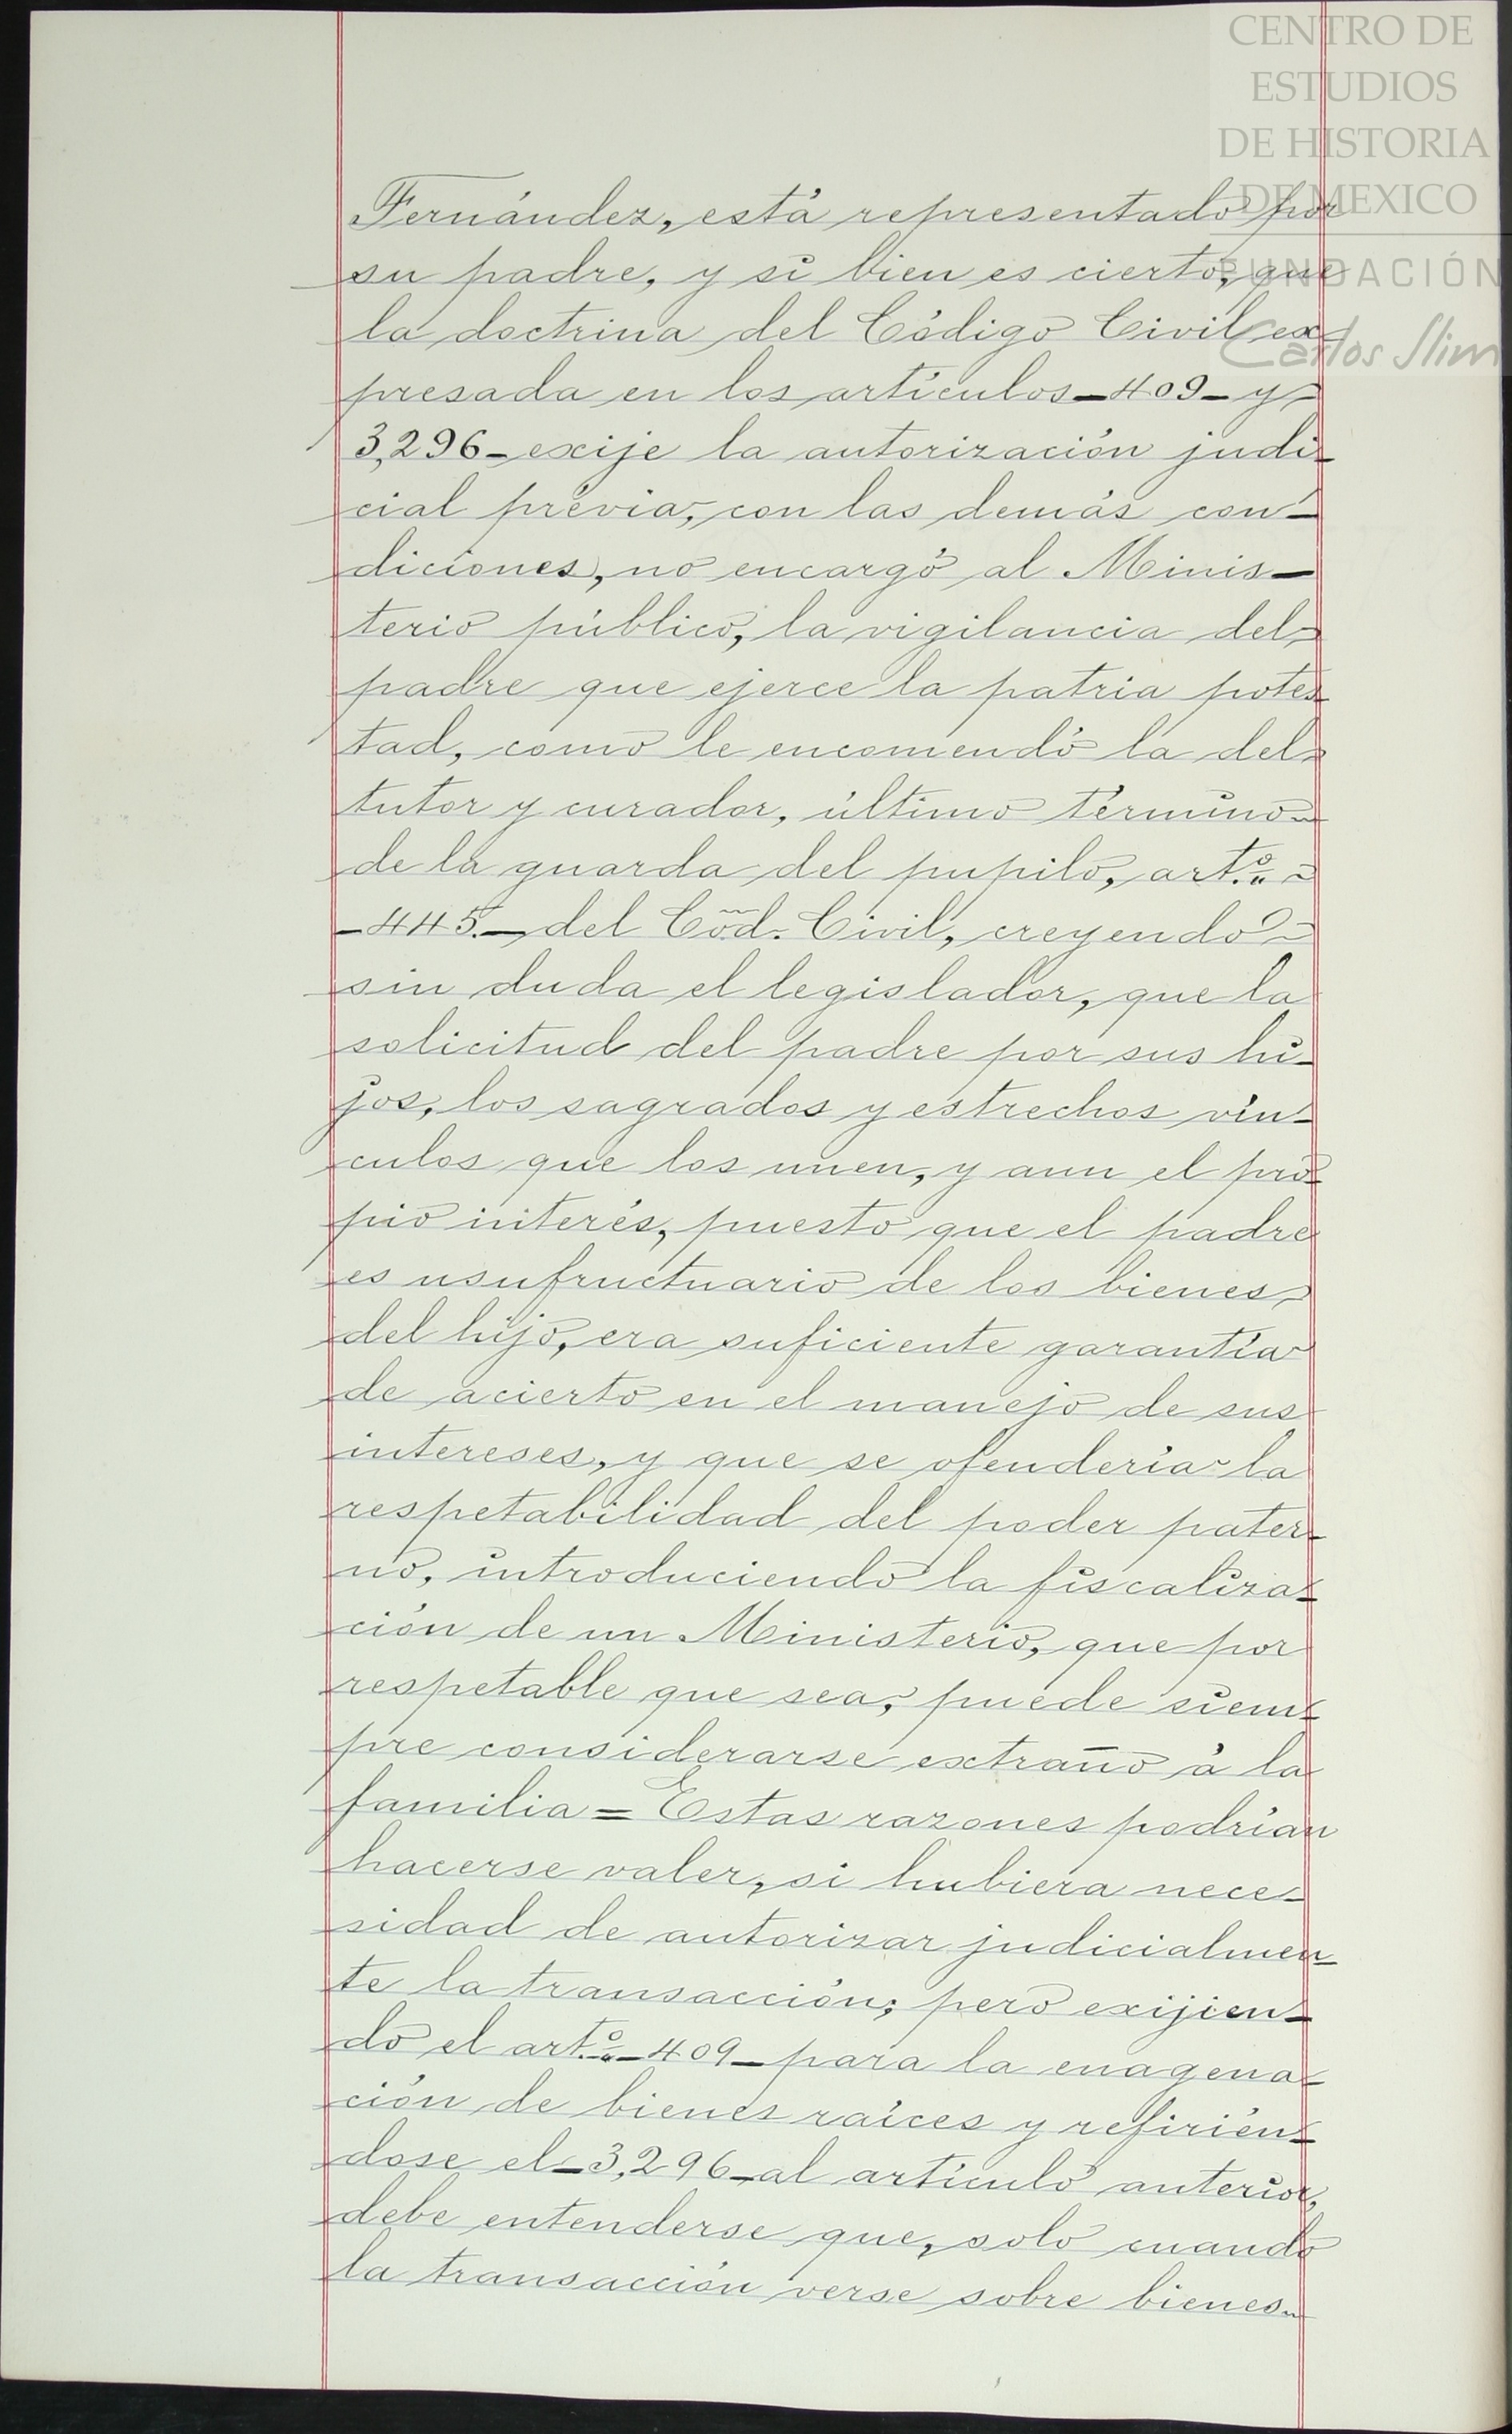 CENTRO DE
ESTUDIOS
DE HISTORIA
DE MEXICO
FUNDACIÓN
Carlos Slim
Fernández, está representado por
su padre, y si bien es cierto, que
la doctrina del Código Civil ex-
presada en los artículos_409_y
3,296_exije la autorización judi-
cial prévia, con las demás con-
diciones, no encargó al Minis-
terio público, la vigilancia del
padre que ejerce la patria potes
tad, como le encomendó la del
tutor y curador, último término
de la guarda del pupilo, art.º
_445._del Cód. Civil, creyendo
sin duda el legislador, que la
solicitud del padre por sus hi-
jos, los sagrados y estrechos vín-
culos que los unen, y aun el pro-
pio interés, puesto que el padre
es usufructuario de los bienes
del hijo, era suficiente garantía
de acierto en el manejo de sus
intereses, y que se ofendería la
respetabilidad del poder pater-
no, introduciendo la fiscaliza-
ción de un Ministerio, que por
respetable que sea, puede siem-
pre considerarse extraño á la
familia = Estas razones podrían
hacerse valer, si hubiera nece-
sidad de autorizar judicialmen-
te la transacción; pero exijien-
do el art.º_409_para la enagena-
ción de bienes raíces y refirién-
dose el_3,296_al artículo anterior,
debe entenderse que, solo cuando
la transacción verse sobre bienes